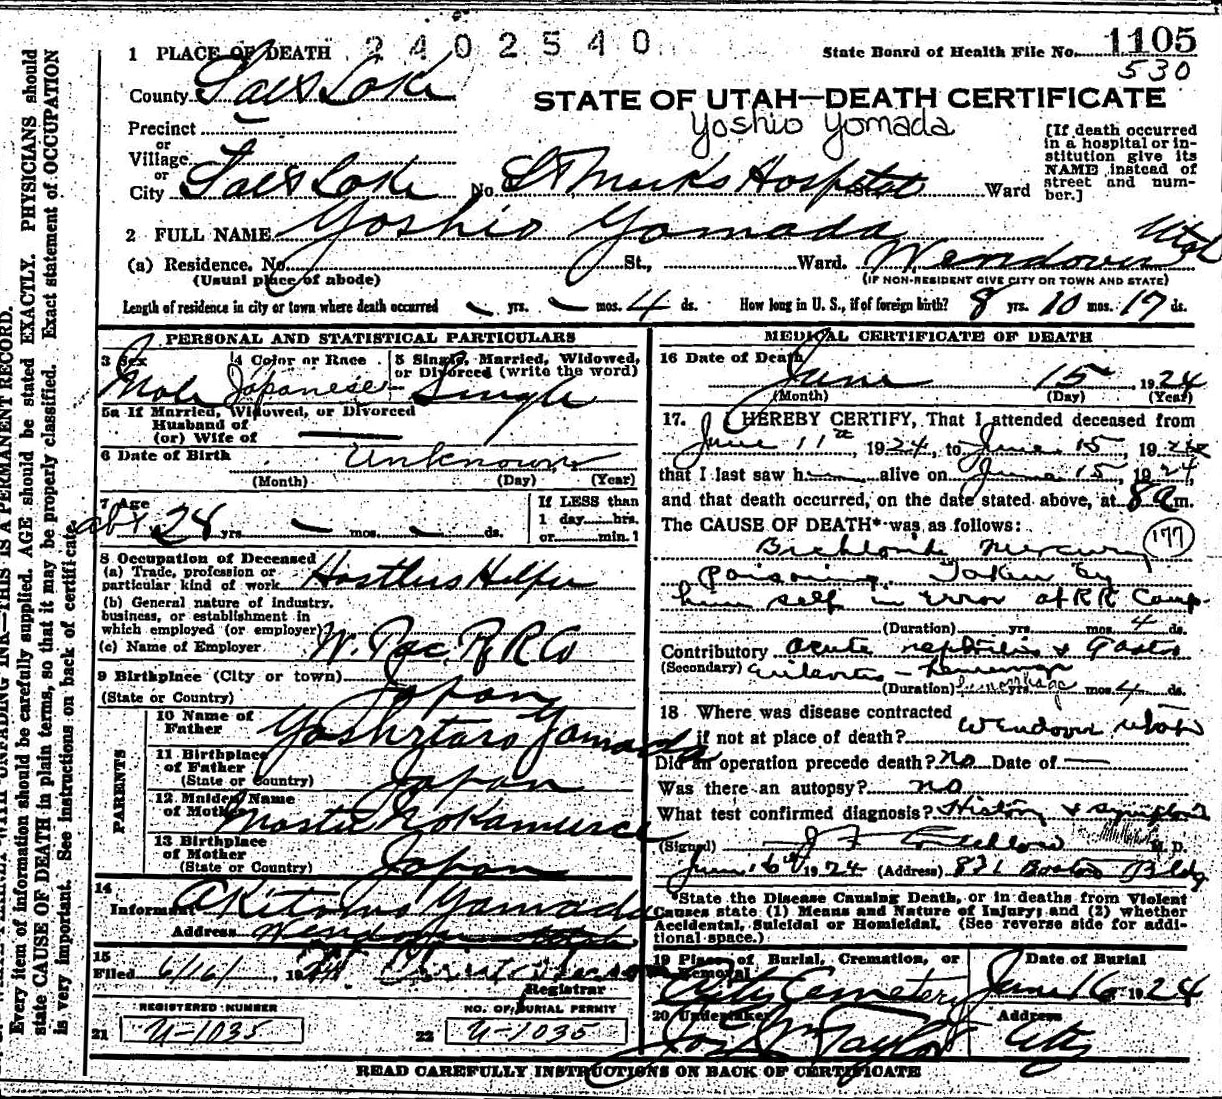 1 PLACE OF DEATH 2402540 State Board of Health File No. 1105
530
County Salt Lake
STATE OF UTAH—DEATH CERTIFICATE
Yoshio Yomada
Precinct
or
Village
or
City Salt Lake No. St Marks Hospital St., Ward
[If death occurred
in a hospital or in-
stitution give its
NAME instead of
street and num-
ber.]
2 FULL NAME Yoshio Yamada
(a) Residence. No. St., Ward. Wendover Utah
(Usual place of abode) (IF NON-RESIDENT GIVE CITY OR TOWN AND STATE)
Length of residence in city or town where death occurred yrs. mos. 4 ds. How long in U. S., if of foreign birth? 8 yrs. 10 mos. 17 ds.
PERSONAL AND STATISTICAL PARTICULARS
3 Sex 4 Color or Race 5 Single, Married, Widowed,
or Divorced (write the word)
Male Japanese Single
5a If Married, Widowed, or Divorced
Husband of
(or) Wife of
6 Date of Birth Unknown
(Month) (Day) (Year)
7 Age
abt 28 yrs mos. ds.
If LESS than
1 day......hrs.
or......min.?
8 Occupation of Deceased
(a) Trade, profession or
particular kind of work Hostlers Helper
(b) General nature of industry,
business, or establishment in
which employed (or employer)
(c) Name of Employer W. Pac. R R Co
9 Birthplace (City or town)
(State or Country) Japan
PARENTS
10 Name of
Father Yamada
11 Birthplace
of Father
(State or Country) Japan
12 Maiden Name
of Mother
13 Birthplace
of Mother
(State or Country) Japan
14
Informant Yamada
Address Wendover Utah
15
Filed 6/16/, 1924
Registrar
REGISTERED NUMBER NO. OF BURIAL PERMIT
21 U-1035 22 U-1035
MEDICAL CERTIFICATE OF DEATH
16 Date of Death
June 15, 1924
(Month) (Day) (Year)
17. I HEREBY CERTIFY, That I attended deceased from
June 11th, 1924, to June 15, 1924
that I last saw h alive on June 15, 1924,
and that death occurred, on the date stated above, at 8 a m.
The CAUSE OF DEATH* was as follows:
Bichloride Mercury 177
Poisoning. Taken by
him self in error at RR Camp.
(Duration) yrs. mos. 4 ds.
Contributory acute nephritis & Gastro
(Secondary) enteritis - hemorrhage
(Duration) yrs. mos. 4 ds.
18 Where was disease contracted
if not at place of death? Wendover Utah
Did an operation precede death? no Date of
Was there an autopsy? no
What test confirmed diagnosis? History & symptoms
(Signed) J F M. D.
June 16th 1924 (Address) 821 Boston Bldg
*State the Disease Causing Death, or in deaths from Violent
Causes state (1) Means and Nature of Injury; and (2) whether
Accidental, Suicidal or Homicidal. (See reverse side for addi-
tional space.)
19 Place of Burial, Cremation, or Removal Date of Burial
City Cemetery June 16 1924
20 Undertaker Address
Taylor City
READ CAREFULLY INSTRUCTIONS ON BACK OF CERTIFICATE
THIS IS A PERMANENT RECORD.
Every item of information should be carefully supplied. AGE should be stated EXACTLY. PHYSICIANS should
state CAUSE OF DEATH in plain terms, so that it may be properly classified. Exact statement of OCCUPATION
is very important. See instructions on back of certificate.